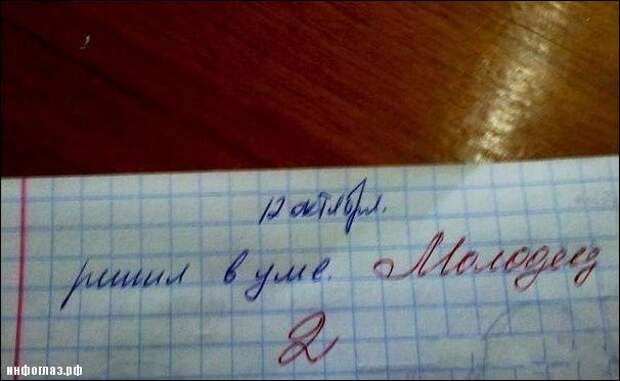 12 октября.
решил в уме. Молодец
2
инфоглаз.рф